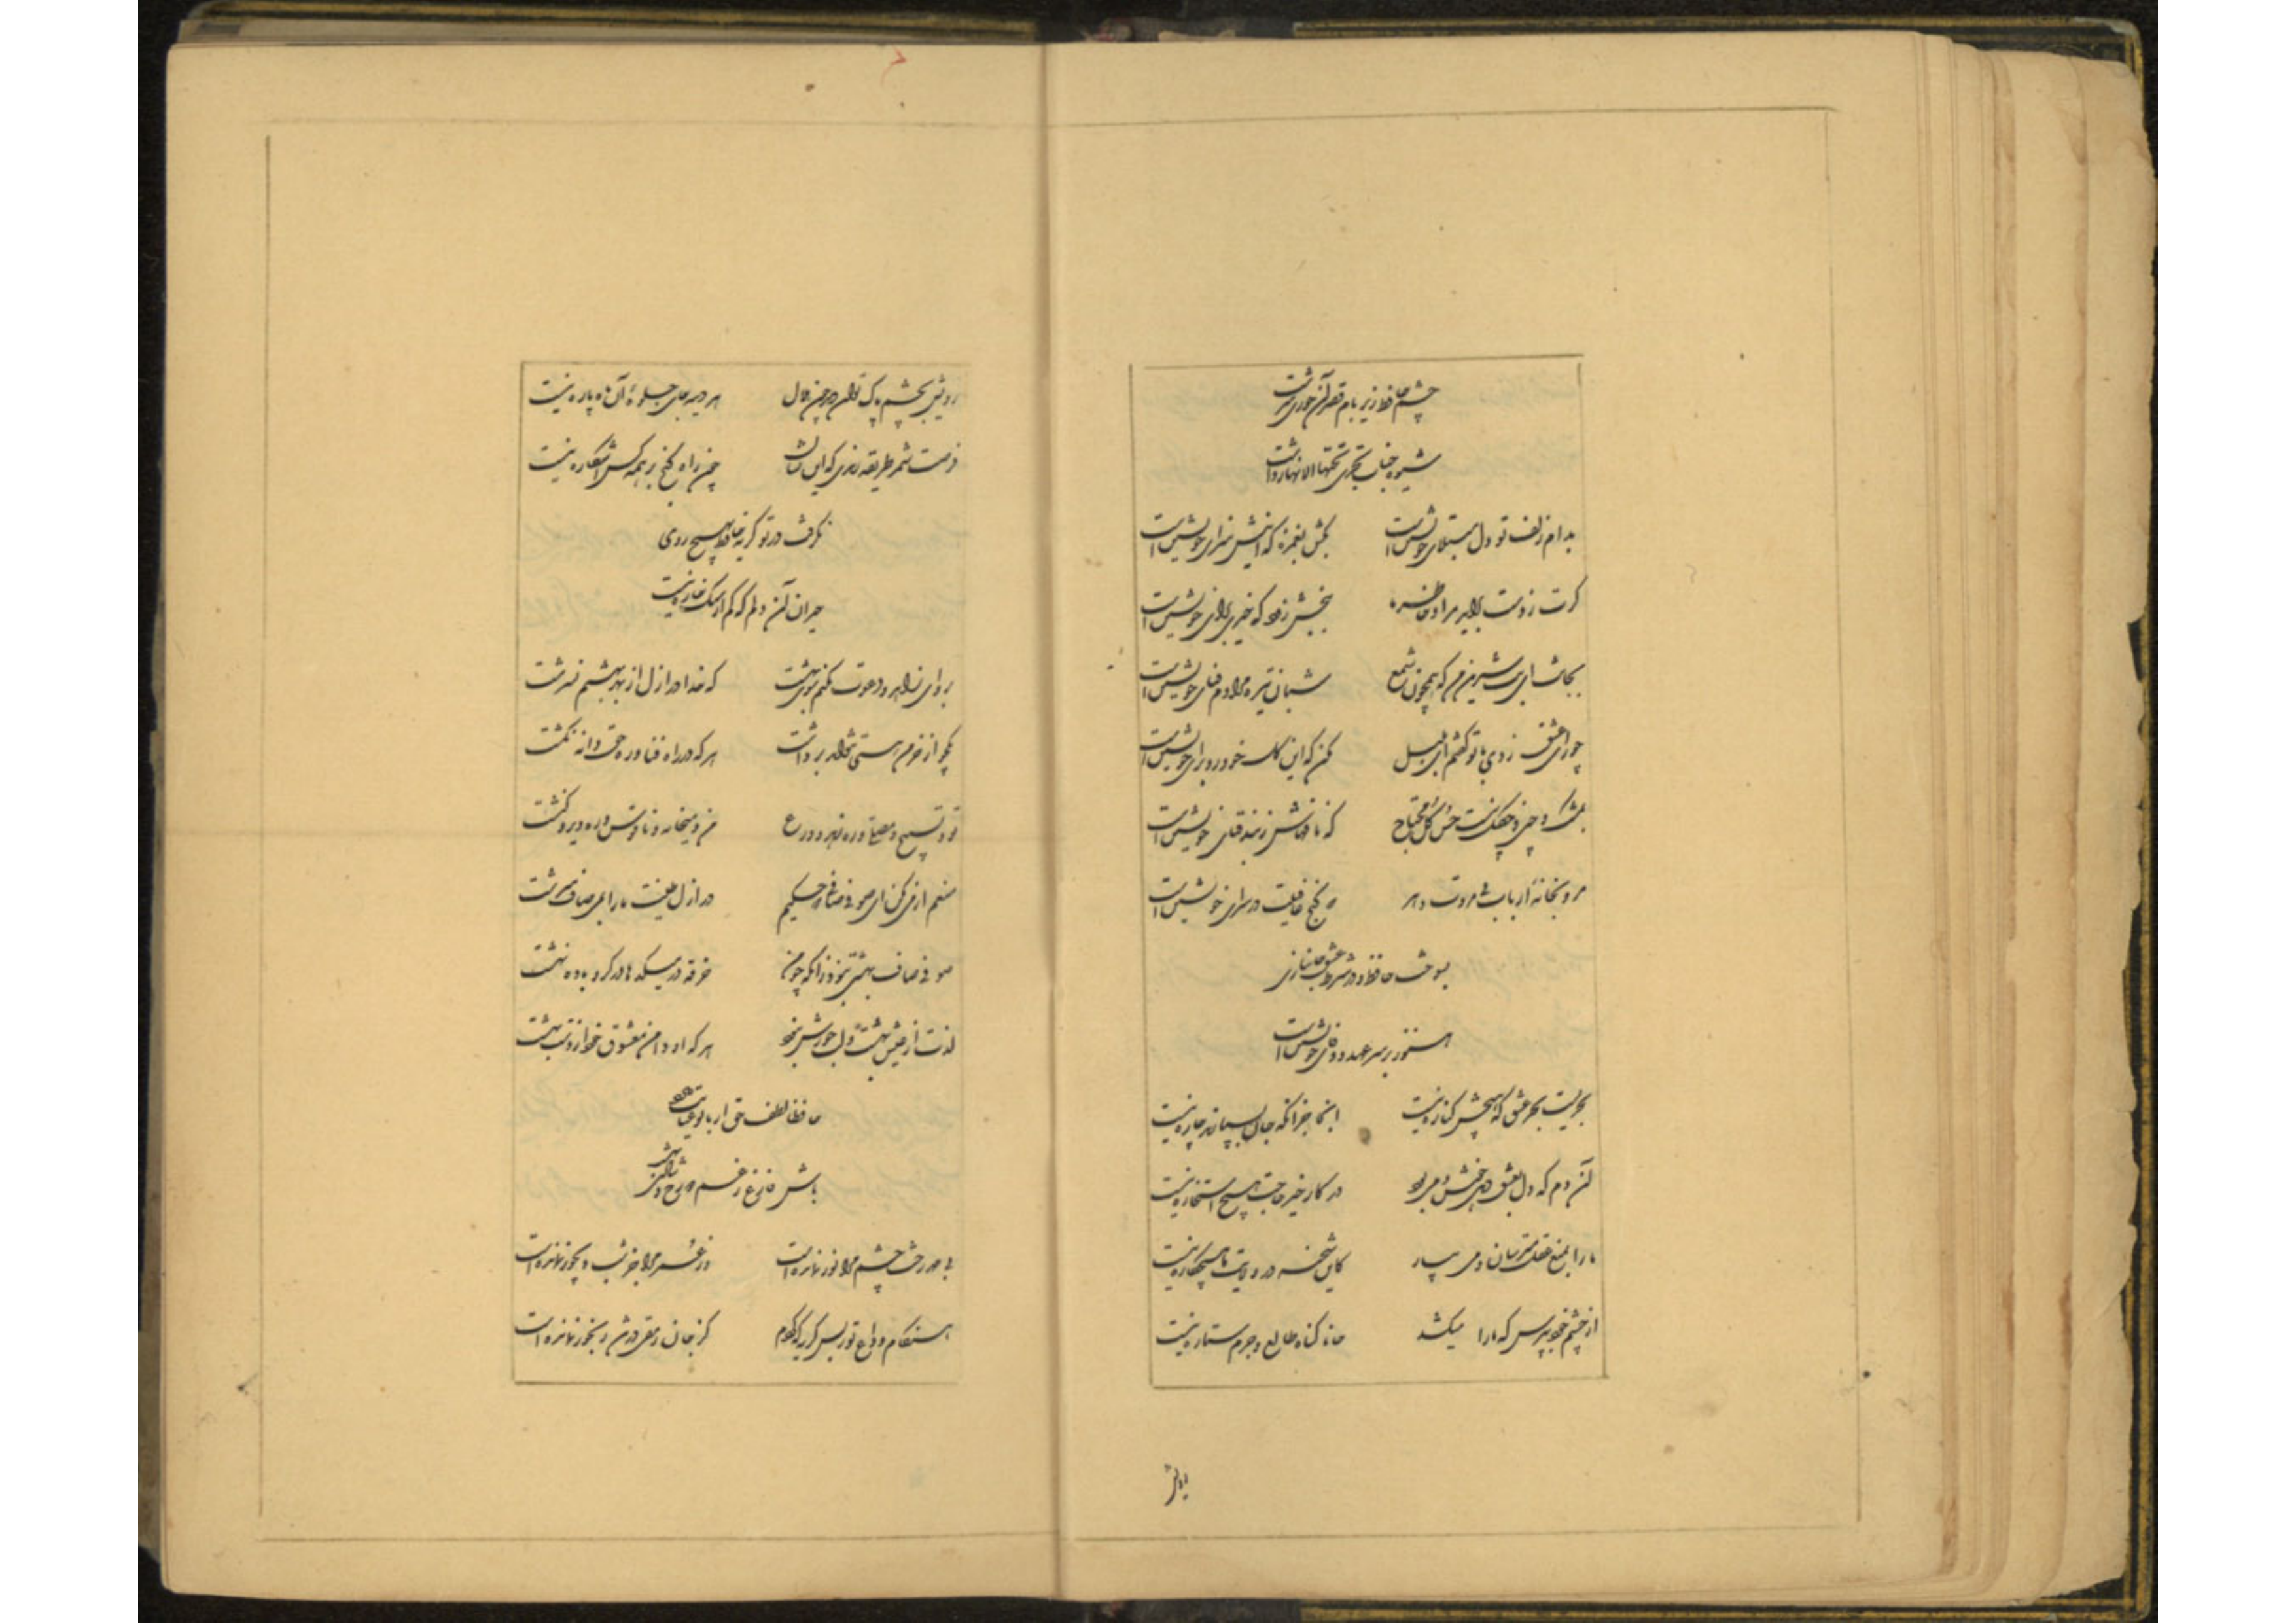 چشم حافظ زیر بام قصر آن حوری سرشت
شیوه جنات تجری تحتها الانهار داشت
بدام زلف تو دل مبتلای خویشتن است بکش بغمزه که اینش سزای خویشتن است
گرت ز دست برآید مراد خاطر ما ببخش زود که خیری بجای خویشتن است
بجانت ای بت شیرین من که همچون شمع شبان تیره مرادم فنای خویشتن است
چو رای عشق زدی با تو گفتم ای بلبل مکن که این گل خودرو برای خویشتن است
بمشک چین و چگل نیست حسن گل محتاج که نافهاش ز بند قبای خویشتن است
مرو بخانه ارباب بی مروت دهر که گنج عافیت در سرای خویشتن است
بسوخت حافظ و در شرط عشق جانبازی
هنوز بر سر عهد و وفای خویشتن است
بحریست بحر عشق که هیچش کناره نیست آنجا جز آنکه جان بسپارند چاره نیست
آن دم که دل بعشق دهی خوش دمی بود در کار خیر حاجت هیچ استخاره نیست
ما را بمنع عقل مترسان و می بیار کاین شحنه در ولایت ما هیچ کاره نیست
از چشم خود بپرس که ما را که میکشد جانا گناه طالع و جرم ستاره نیست
رویش بچشم پاک توان دید چون هلال هر دیده جای جلوهٔ آن ماه پاره نیست
فرصت شمر طریقه رندی که این نشان چون راه گنج بر همه کس آشکاره نیست
نگرفت در تو گریه حافظ بهیچ روی
حیران آن دلم که کم از سنگ خاره نیست
برو ای زاهد و دعوت مکنم سوی بهشت که خدا در ازل از بهر بهشتم نسرشت
یکجو از خرمن هستی نتواند برداشت هر که در راه فنا در ره حق دانه نکشت
تو و تسبیح و مصلی و ره زهد و ورع من و میخانه و ناقوس و ره دیر و کنشت
منعم از می مکن ای صوفی صافی که حکیم در ازل طینت ما را بمی صاف سرشت
صوفی صاف بهشتی نبود زانکه چو من خرقه در میکده ها در گرو باده نهشت
لذت از عیش بهشت و لب حورش نبود هر که او دامن معشوق خود از دست بهشت
حافظا لطف حق ار با تو عنایت دارد
باش فارغ ز غم دوزخ و شادی بهشت
بی مهر رخت چشم مرا نور نمانده است وز عمر مرا جز شب دیجور نمانده است
هنگام وداع تو ز بس گریه که کردم کز جان رمقی در تن رنجور نمانده است
رویش